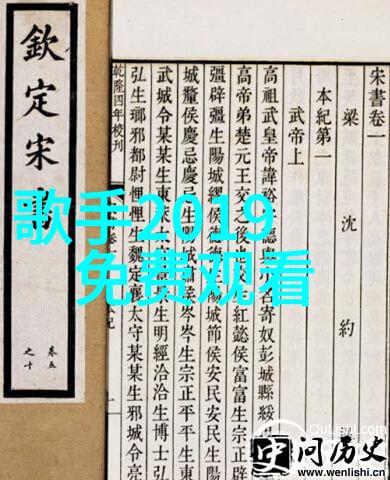 欽定宋
卷五
之十
宋書卷一
梁 沈 約
本紀第一
武帝上
高祖武皇帝諱裕 德輿小名寄奴彭城縣綏
高帝弟楚元王交之後 紅懿侯富富生宗正辟
彊辟彊生陽城繆侯德德 陽城節侯安民安民生陽
城釐侯慶忌慶忌生陽城 侯岑岑生宗正平平生東
武城令某某生東萊太 生明經洽洽生博士弘
弘生瑯邪都尉悝悝生魏定襄太守某某生邪城令亮
乾隆四年校刊
歌手2019
免费观看
QuLishi.com
史问历史
www.wenlishi.cn